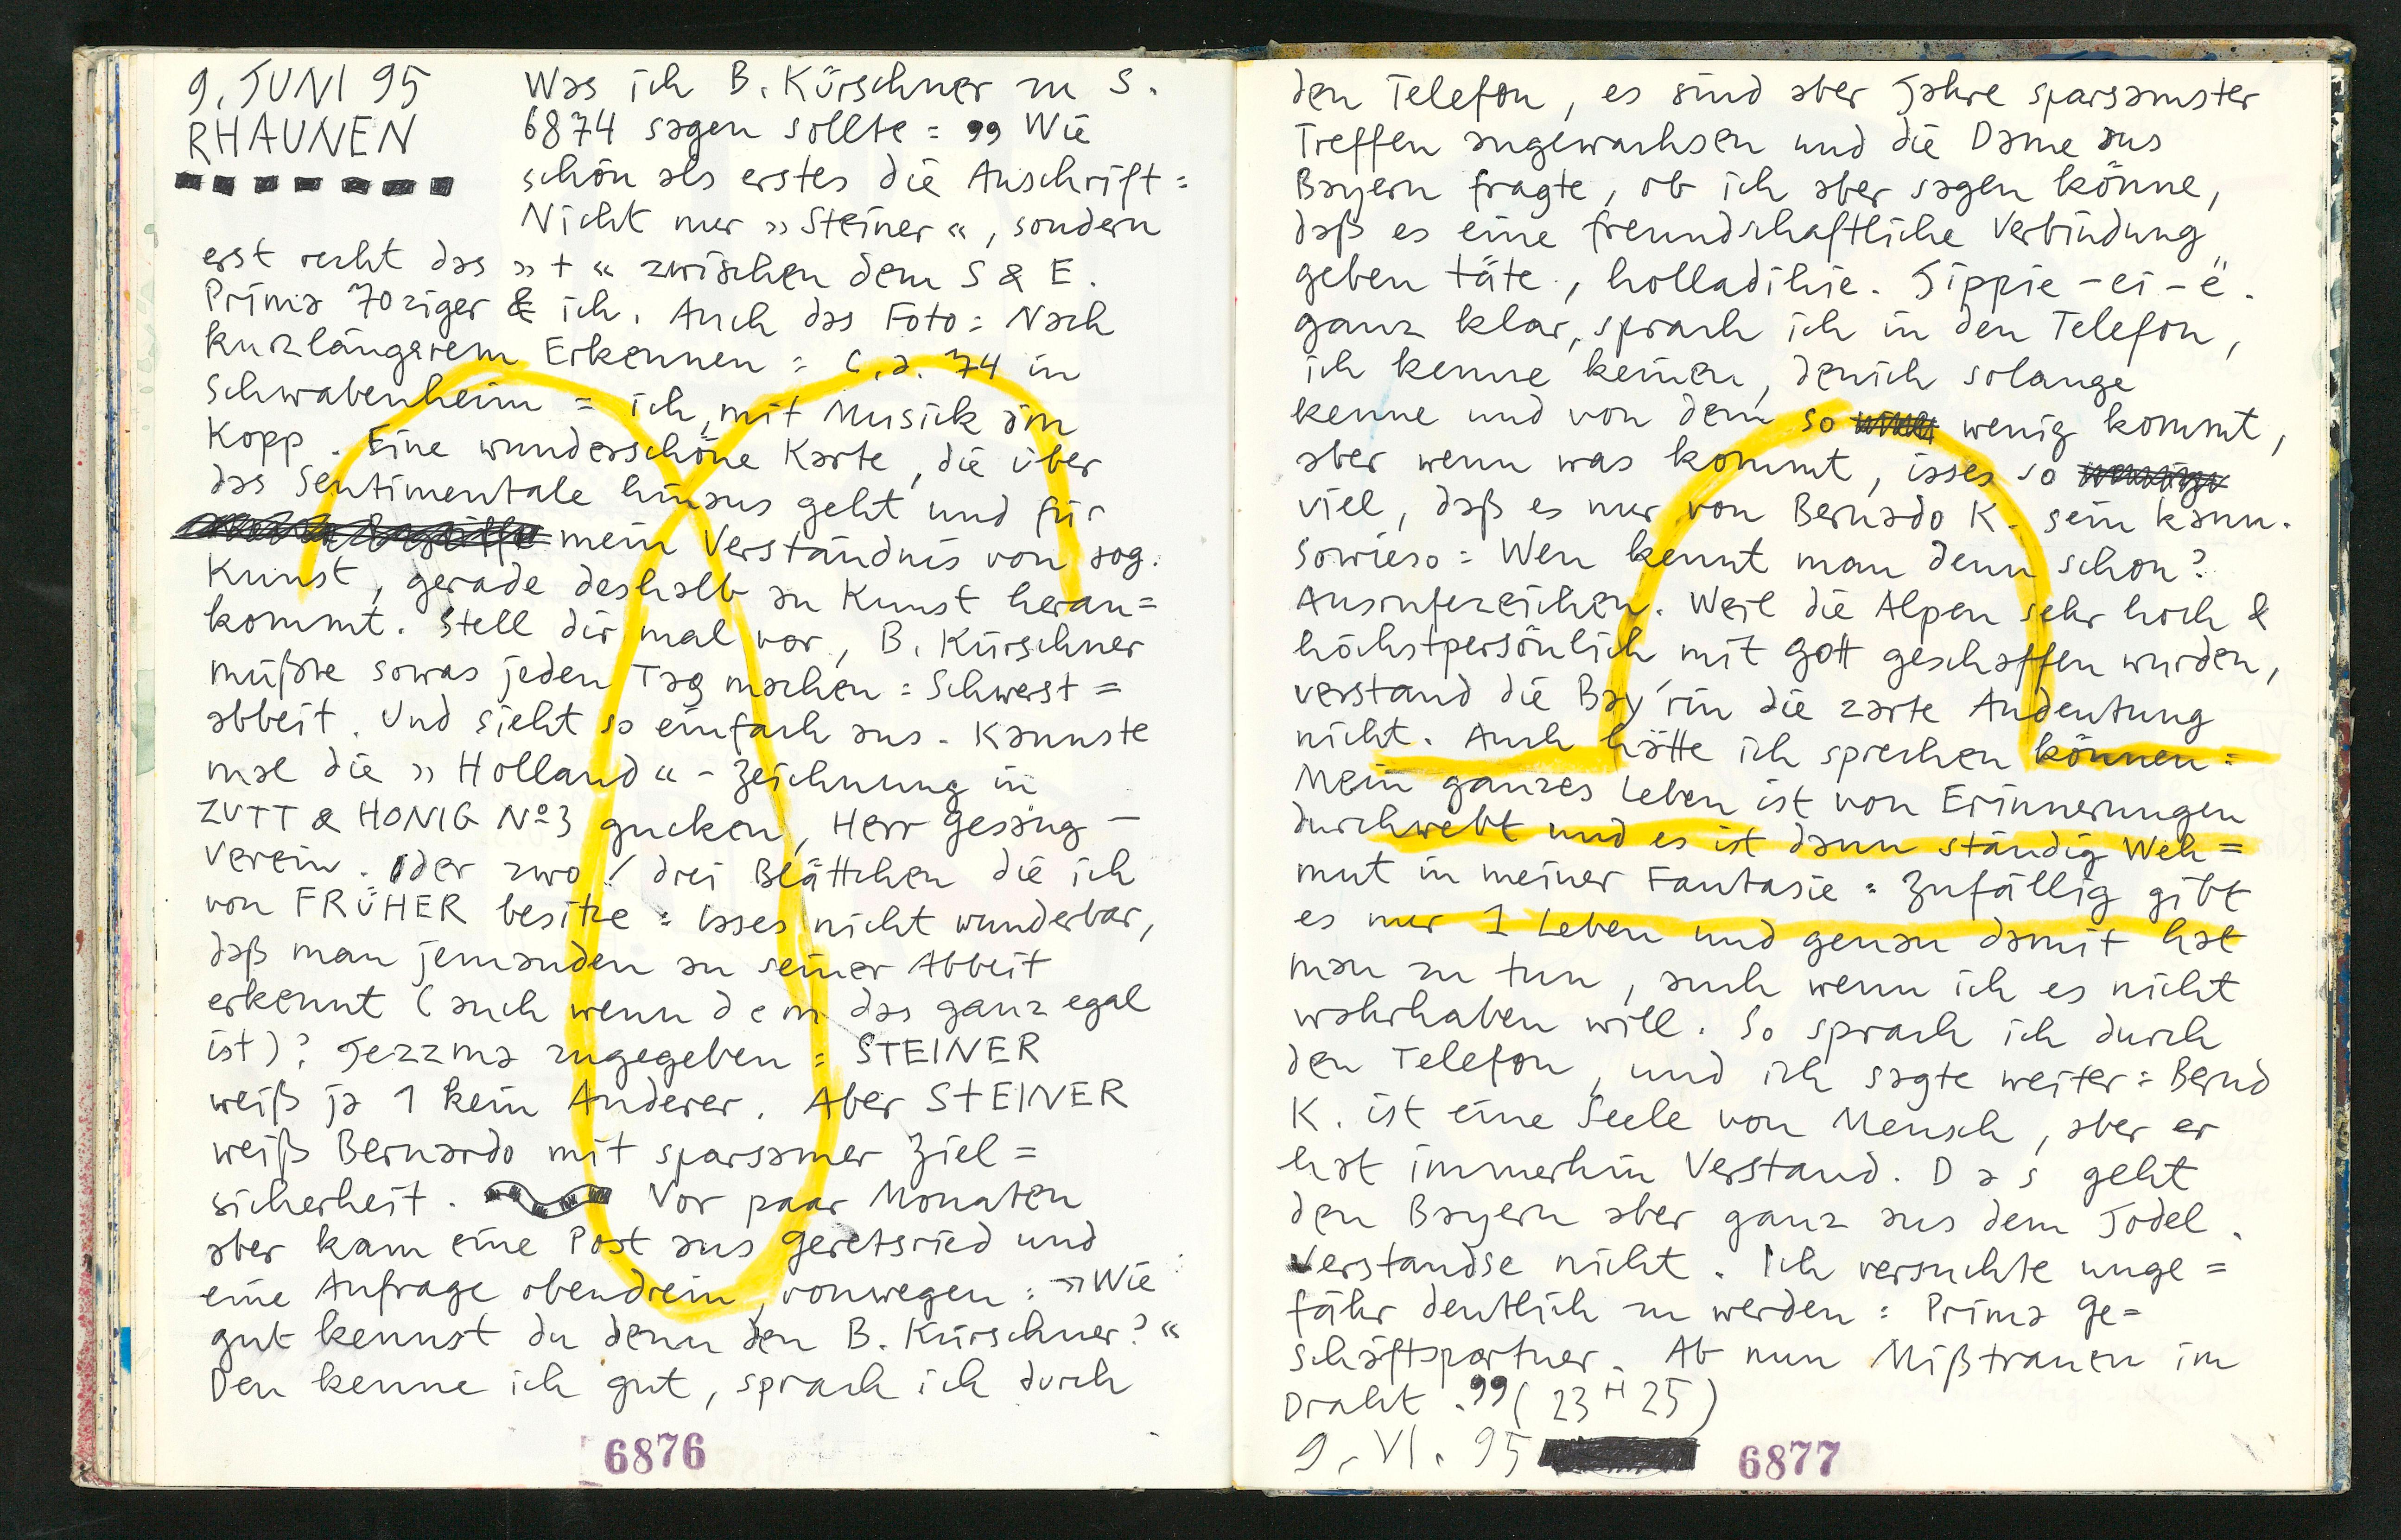 9. JUNI 95
RHAUNEN
Was ich B. Kürschner zu S.
6874 sagen sollte = „ Wie
schön als erstes die Anschrift =
Nicht nur »Steiner«, sondern
erst recht das »+« zwischen dem S & E.
Prima 70ziger & ich. Auch das Foto = Nach
kurzlängerem Erkennen = c.a. 74 in
Schwabenheim = ich, mit Musick im
Kopp. Eine wunderschöne Karte, die über
das Sentimentale hinaus geht und für
mein Verständnis von sog.
Kunst, gerade deshalb an Kunst heran=
kommt. Stell dir mal vor, B. Kürschner
müßte sowas jeden Tag machen = Schwerst=
abbeit. Und sieht so einfach aus. Kannste
mal die »Holland«-Zeichnung in
ZUTT & HONIG Nº3 gucken, Herr Gesang-
verein. Oder zwo / drei Blättchen die ich
von FRÜHER besitze = isses nicht wunderbar,
daß man jemanden an seiner Abbeit
erkennt (auch wenn dem das ganz egal
ist)? Jezzma zugegeben = STEINER
weiß ja 1 kein Anderer. Aber S+EINER
weiß Bernardo mit sparsamer Ziel=
sicherheit. Vor paar Monaten
aber kam eine Post aus Geretsried und
eine Anfrage obendrein, vonwegen: »Wie
gut kennst du denn den B. Kürschner?«
Den kenne ich gut, sprach ich durch
6876
den Telefon, es sind aber Jahre sparsamster
Treffen angewachsen und die Dame aus
Bayern fragte, ob ich aber sagen könne,
daß es eine freundschaftliche Verbindung
geben täte, holladihie. Jippie-ei-ë.
ganz klar, sprach ich in den Telefon,
ich kenne keinen, denich solange
kenne und von dem so wenig kommt,
aber wenn was kommt, isses so
viel, daß es nur von Bernado K. sein kann.
Sowieso = Wen kennt man denn schon?
Ausrufezeichen. Weil die Alpen sehr hoch &
höchstpersönlich mit Gott geschaffen wurden,
verstand die Bay'rin die zarte Andeutung
nicht. Auch hätte ich sprechen können =
Mein ganzes Leben ist von Erinnerungen
durchwebt und es ist dann ständig Weh=
mut in meiner Fantasie = Zufällig gibt
es nur 1 Leben und genau damit hat
man zu tun, auch wenn ich es nicht
wahrhaben will. So sprach ich durch
den Telefon, und ich sagte weiter = Bernd
K. ist eine Seele von Mensch, aber er
hat immerhin Verstand. Das geht
den Bayern aber ganz aus dem Jodel.
Verstandse nicht. Ich versuchte unge=
fähr deutlich zu werden = Prima Ge=
schäftspartner. Ab nun Mißtrauen im
Draht.“ (23 H 25)
9. VI. 95
6877